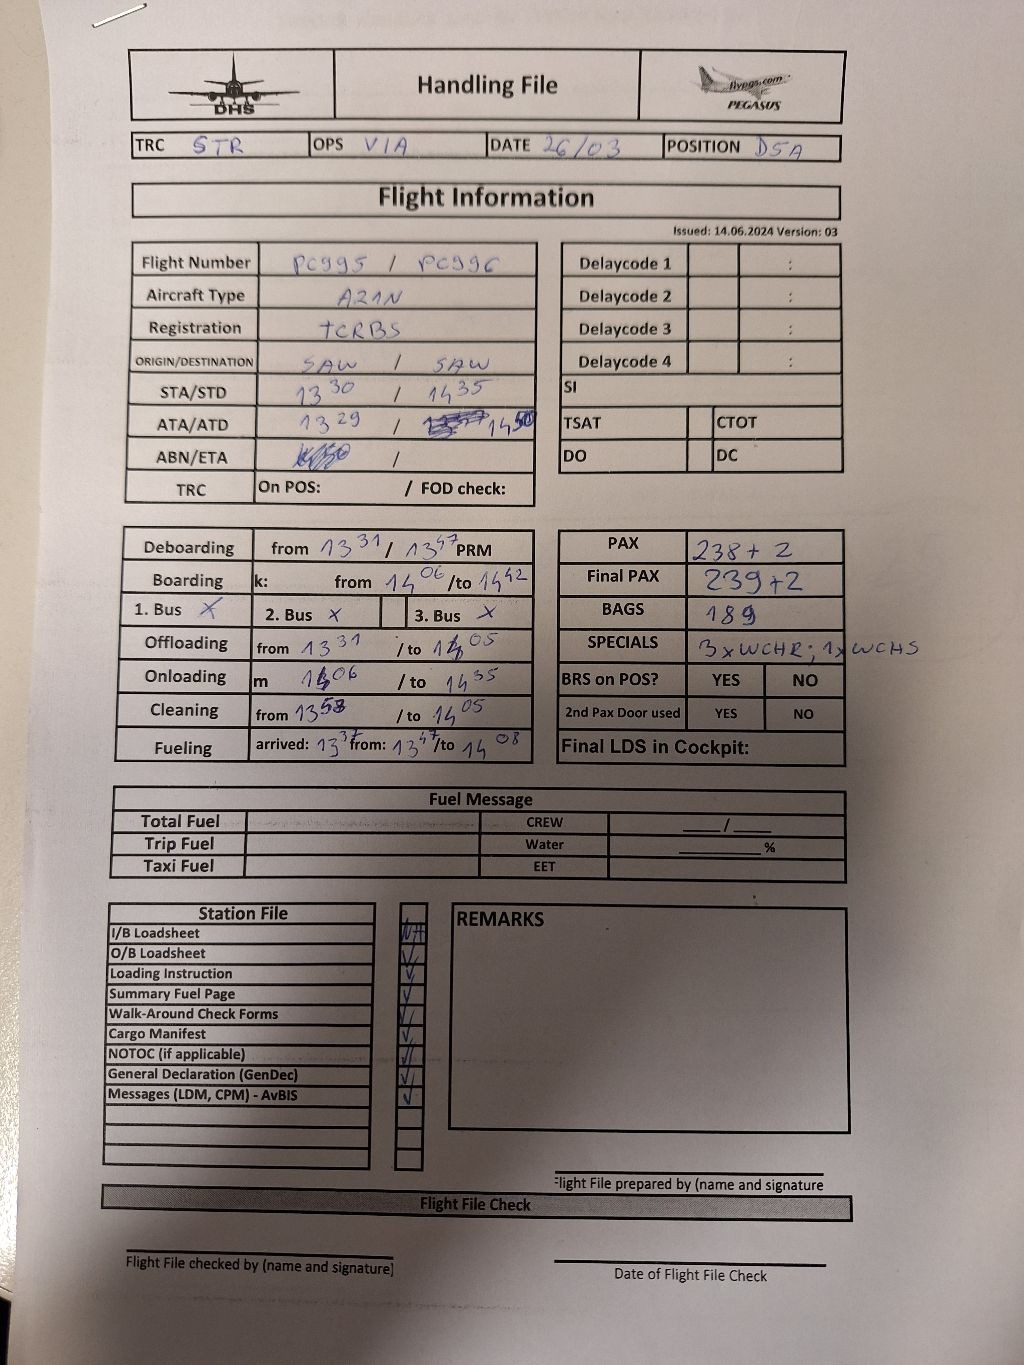 DHS
Handling File
flypgs.com
PEGASUS
TRC STR OPS VIA DATE 26/03 POSITION D5A
Flight Information
Issued: 14.06.2024 Version: 03
Flight Number PC995 / PC996
Aircraft Type A21N
Registration TCRBS
ORIGIN/DESTINATION SAW / SAW
STA/STD 13 30 / 14 35
ATA/ATD 13 29 / 14 50
ABN/ETA /
TRC On POS: / FOD check:
Delaycode 1 :
Delaycode 2 :
Delaycode 3 :
Delaycode 4 :
SI
TSAT CTOT
DO DC
Deboarding from 13 31 / 13 47 PRM
Boarding k: from 14 06 /to 14 42
1. Bus X 2. Bus X 3. Bus X
Offloading from 13 31 / to 14 05
Onloading m 14 06 / to 14 35
Cleaning from 13 58 / to 14 05
Fueling arrived: 13 37 from: 13 47 /to 14 08
PAX 238 + 2
Final PAX 239 + 2
BAGS 189
SPECIALS 3 x WCHR; 1x WCHS
BRS on POS? YES NO
2nd Pax Door used YES NO
Final LDS in Cockpit:
Fuel Message
Total Fuel CREW ____/____
Trip Fuel Water ________%
Taxi Fuel EET
Station File
I/B Loadsheet
O/B Loadsheet ✓
Loading Instruction ✓
Summary Fuel Page ✓
Walk-Around Check Forms ✓
Cargo Manifest ✓
NOTOC (if applicable) ✓
General Declaration (GenDec) ✓
Messages (LDM, CPM) - AvBIS ✓
REMARKS
Flight File prepared by (name and signature
Flight File Check
Flight File checked by (name and signature)
Date of Flight File Check